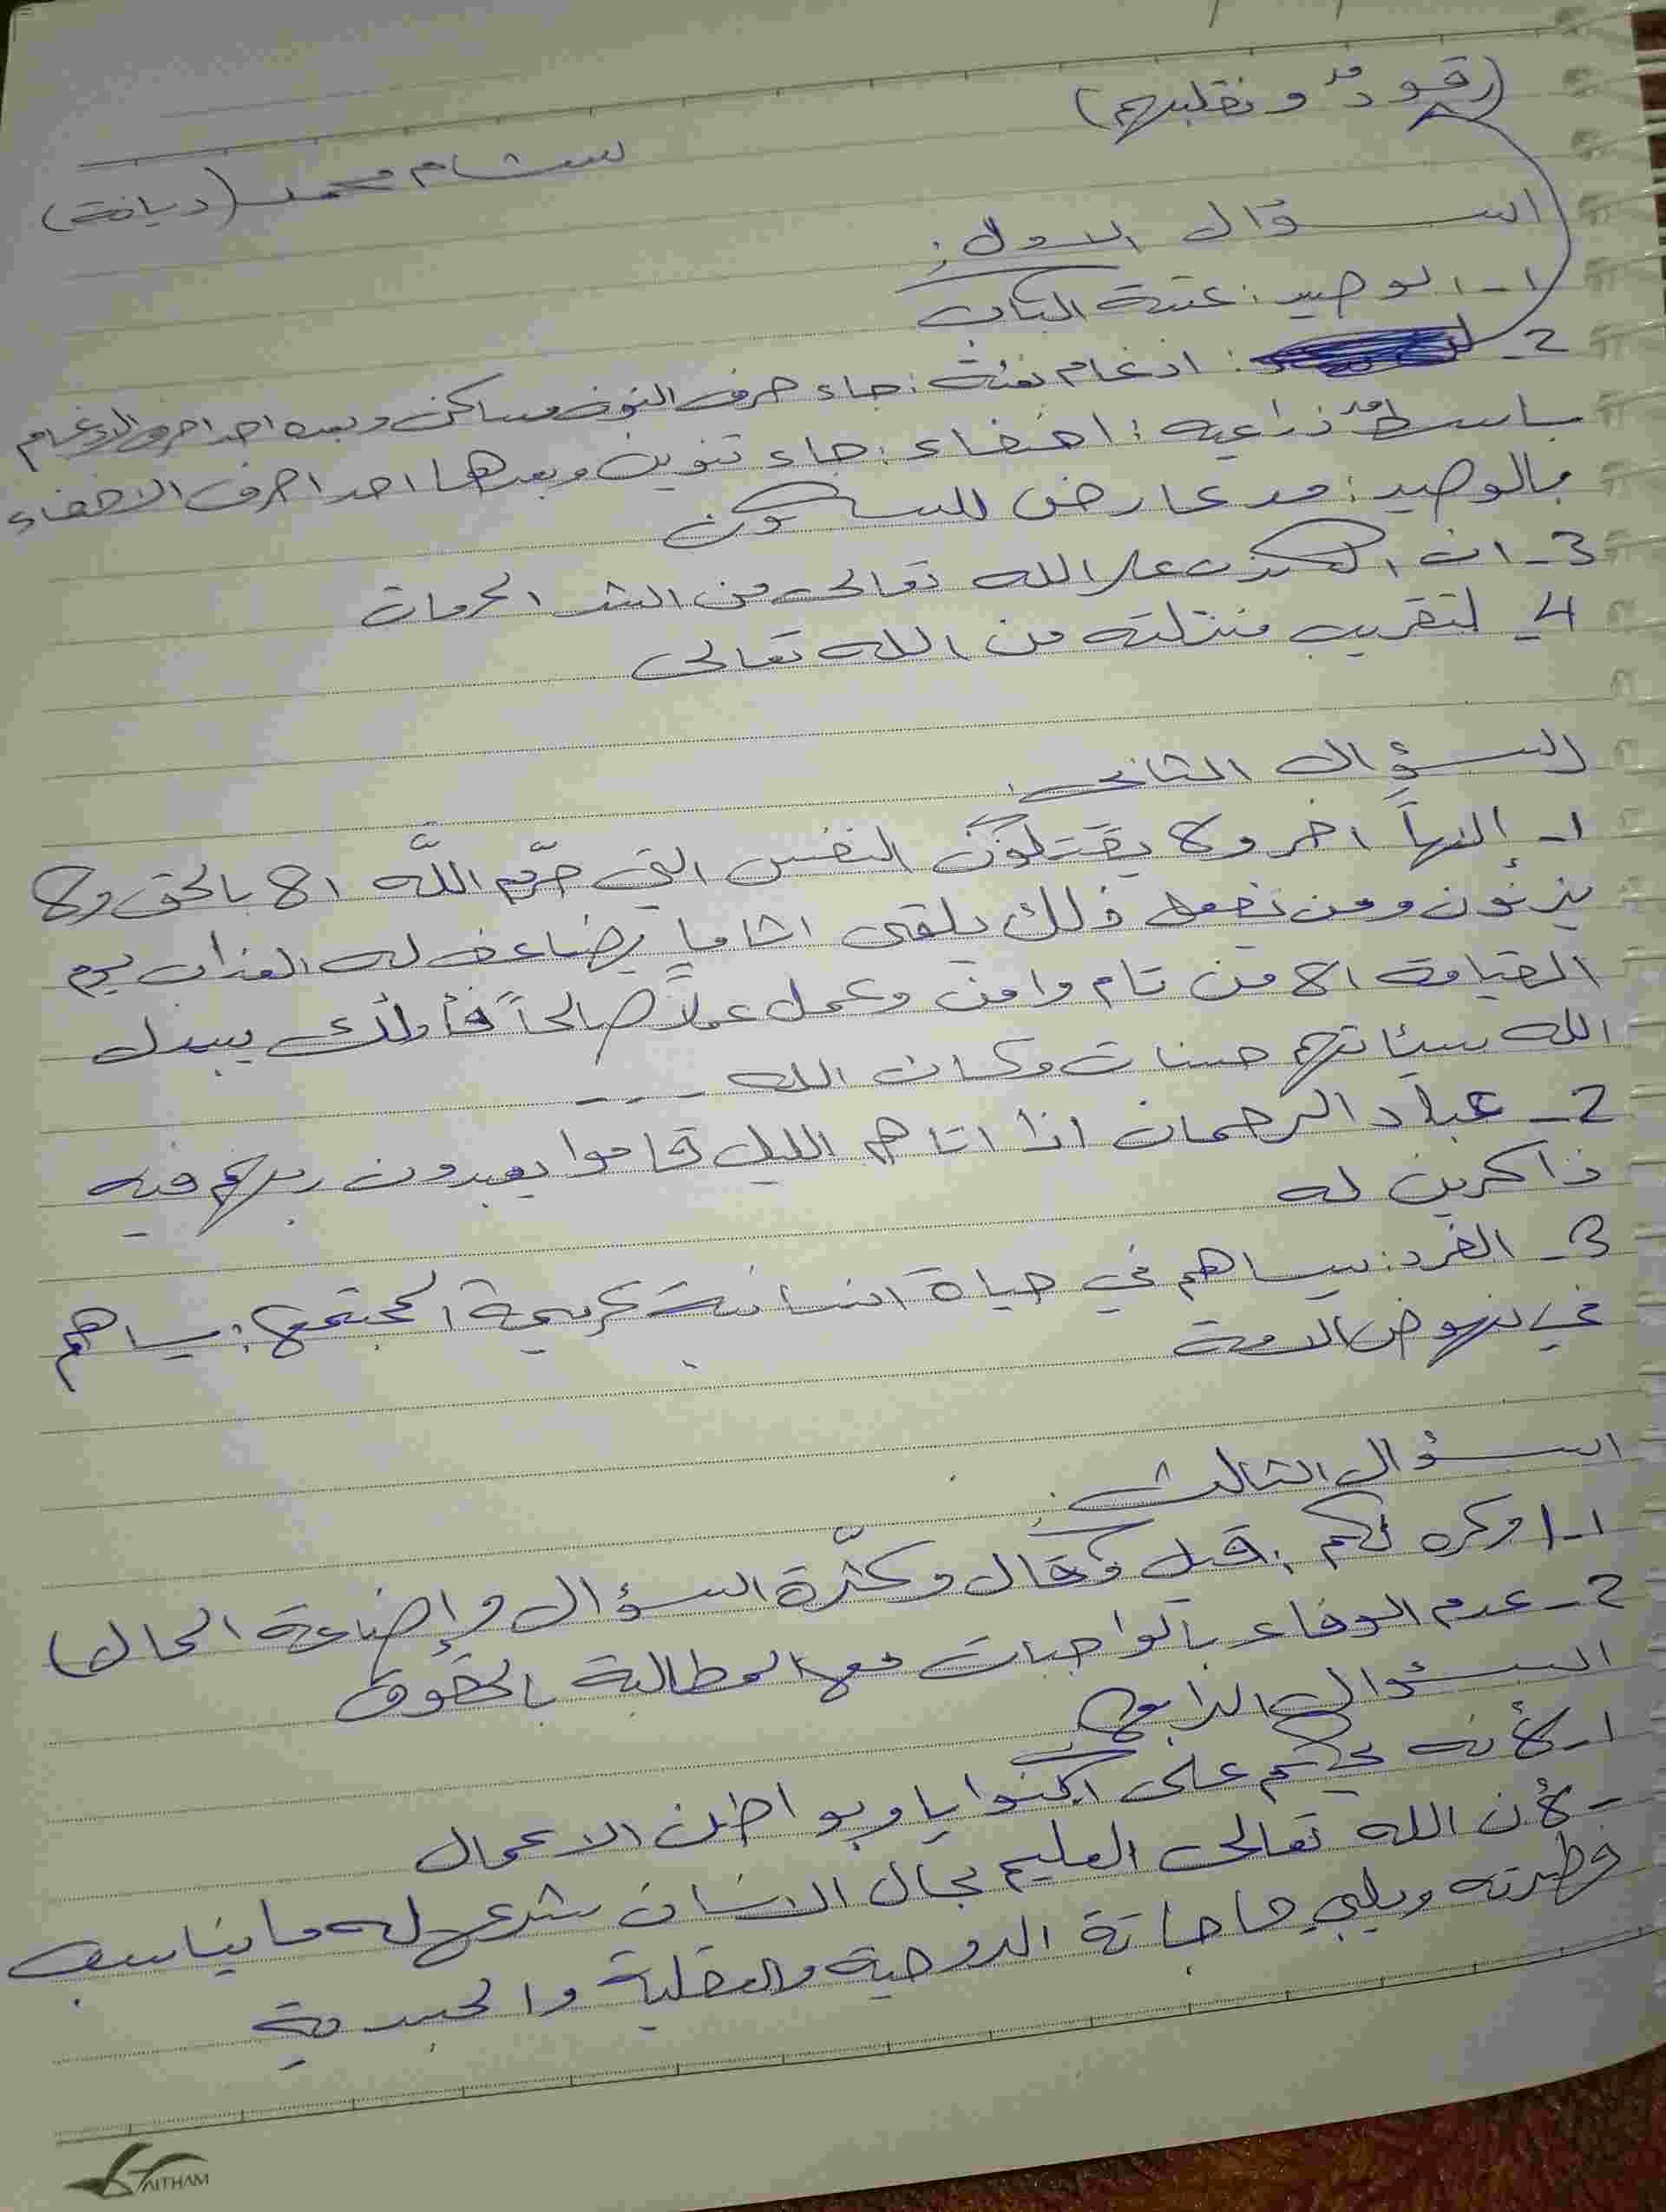 (رقودٌ ونقلبهم)
محمد (ديانة)
السؤال الاول:
١- الوصيد: عتبة الباب
2- : ادغام بغنة: جاء حرف النون ساكن وبعده احد احرف الادغام
باسطٌ ذراعيه: اخفاء: جاء تنوين وبعدها احد احرف الاخفاء
بالوصيد: مد عارض للسكون
3- ان الكذب على الله تعالى من اشد المحرمات
4- لتقريب منزلته من الله تعالى
السؤال الثاني:
١- إلهاً اخر ولا يقتلون النفس التي حرّم اللَّه الا بالحق ولا
يزنون ومن يفعل ذلك يلقى اثاما يضاعف له العذاب يوم
القيامة الا من تام وامن وعمل عملاً صالحاً فأولئك يبدل
الله سيئاتهم حسنات وكان الله ----
2- عباد الرحمان اذا اتاهم الليل قاموا يعبدون ربهم فيه
ذاكرين له
3- الفرد: يساهم في حياة انسانية كريمة المجتمع: يساهم
في نهوض الامة
السؤال الثالث:
١- (وكره لكم: قيل وقال وكثرة السؤال وإضاعة المال)
2- عدم الوفاء بالواجبات مع المطالبة بالحقوق
السؤال الرابع
١- لأنه يحكم على النوايا وبواطن الاعمال
- لأن الله تعالى العليم بحال الانسان شرع له ما يناسب
فطرته ويلبي حاجاتة الروحية والعقلية والجسدية
HAITHAM